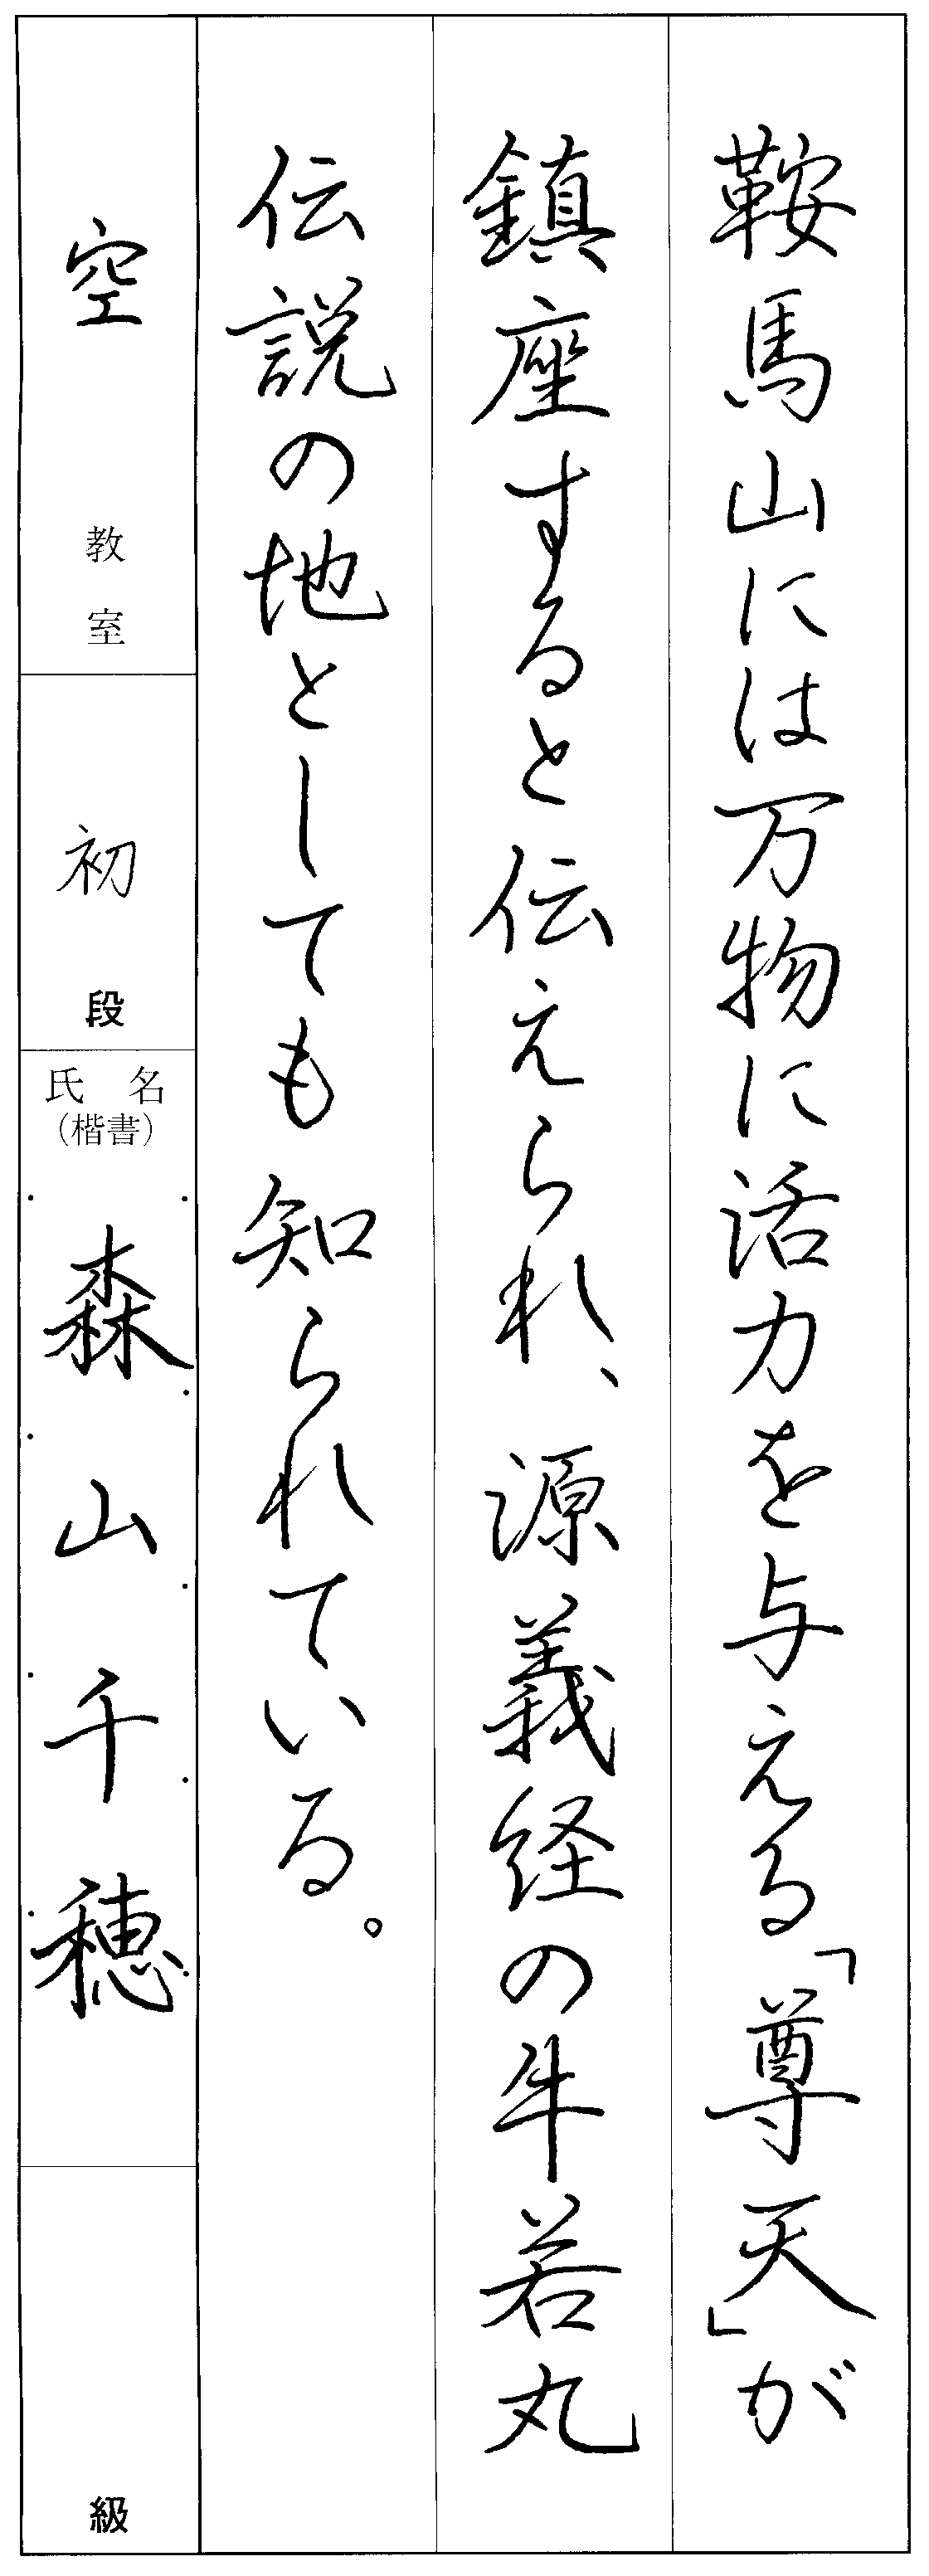 鞍馬山には万物に活力を与える「尊天」が
鎮座すると伝えられ、源義経の牛若丸
伝説の地としても知られている。
空 教室
初 段
氏名
(楷書)
森山千穂
級